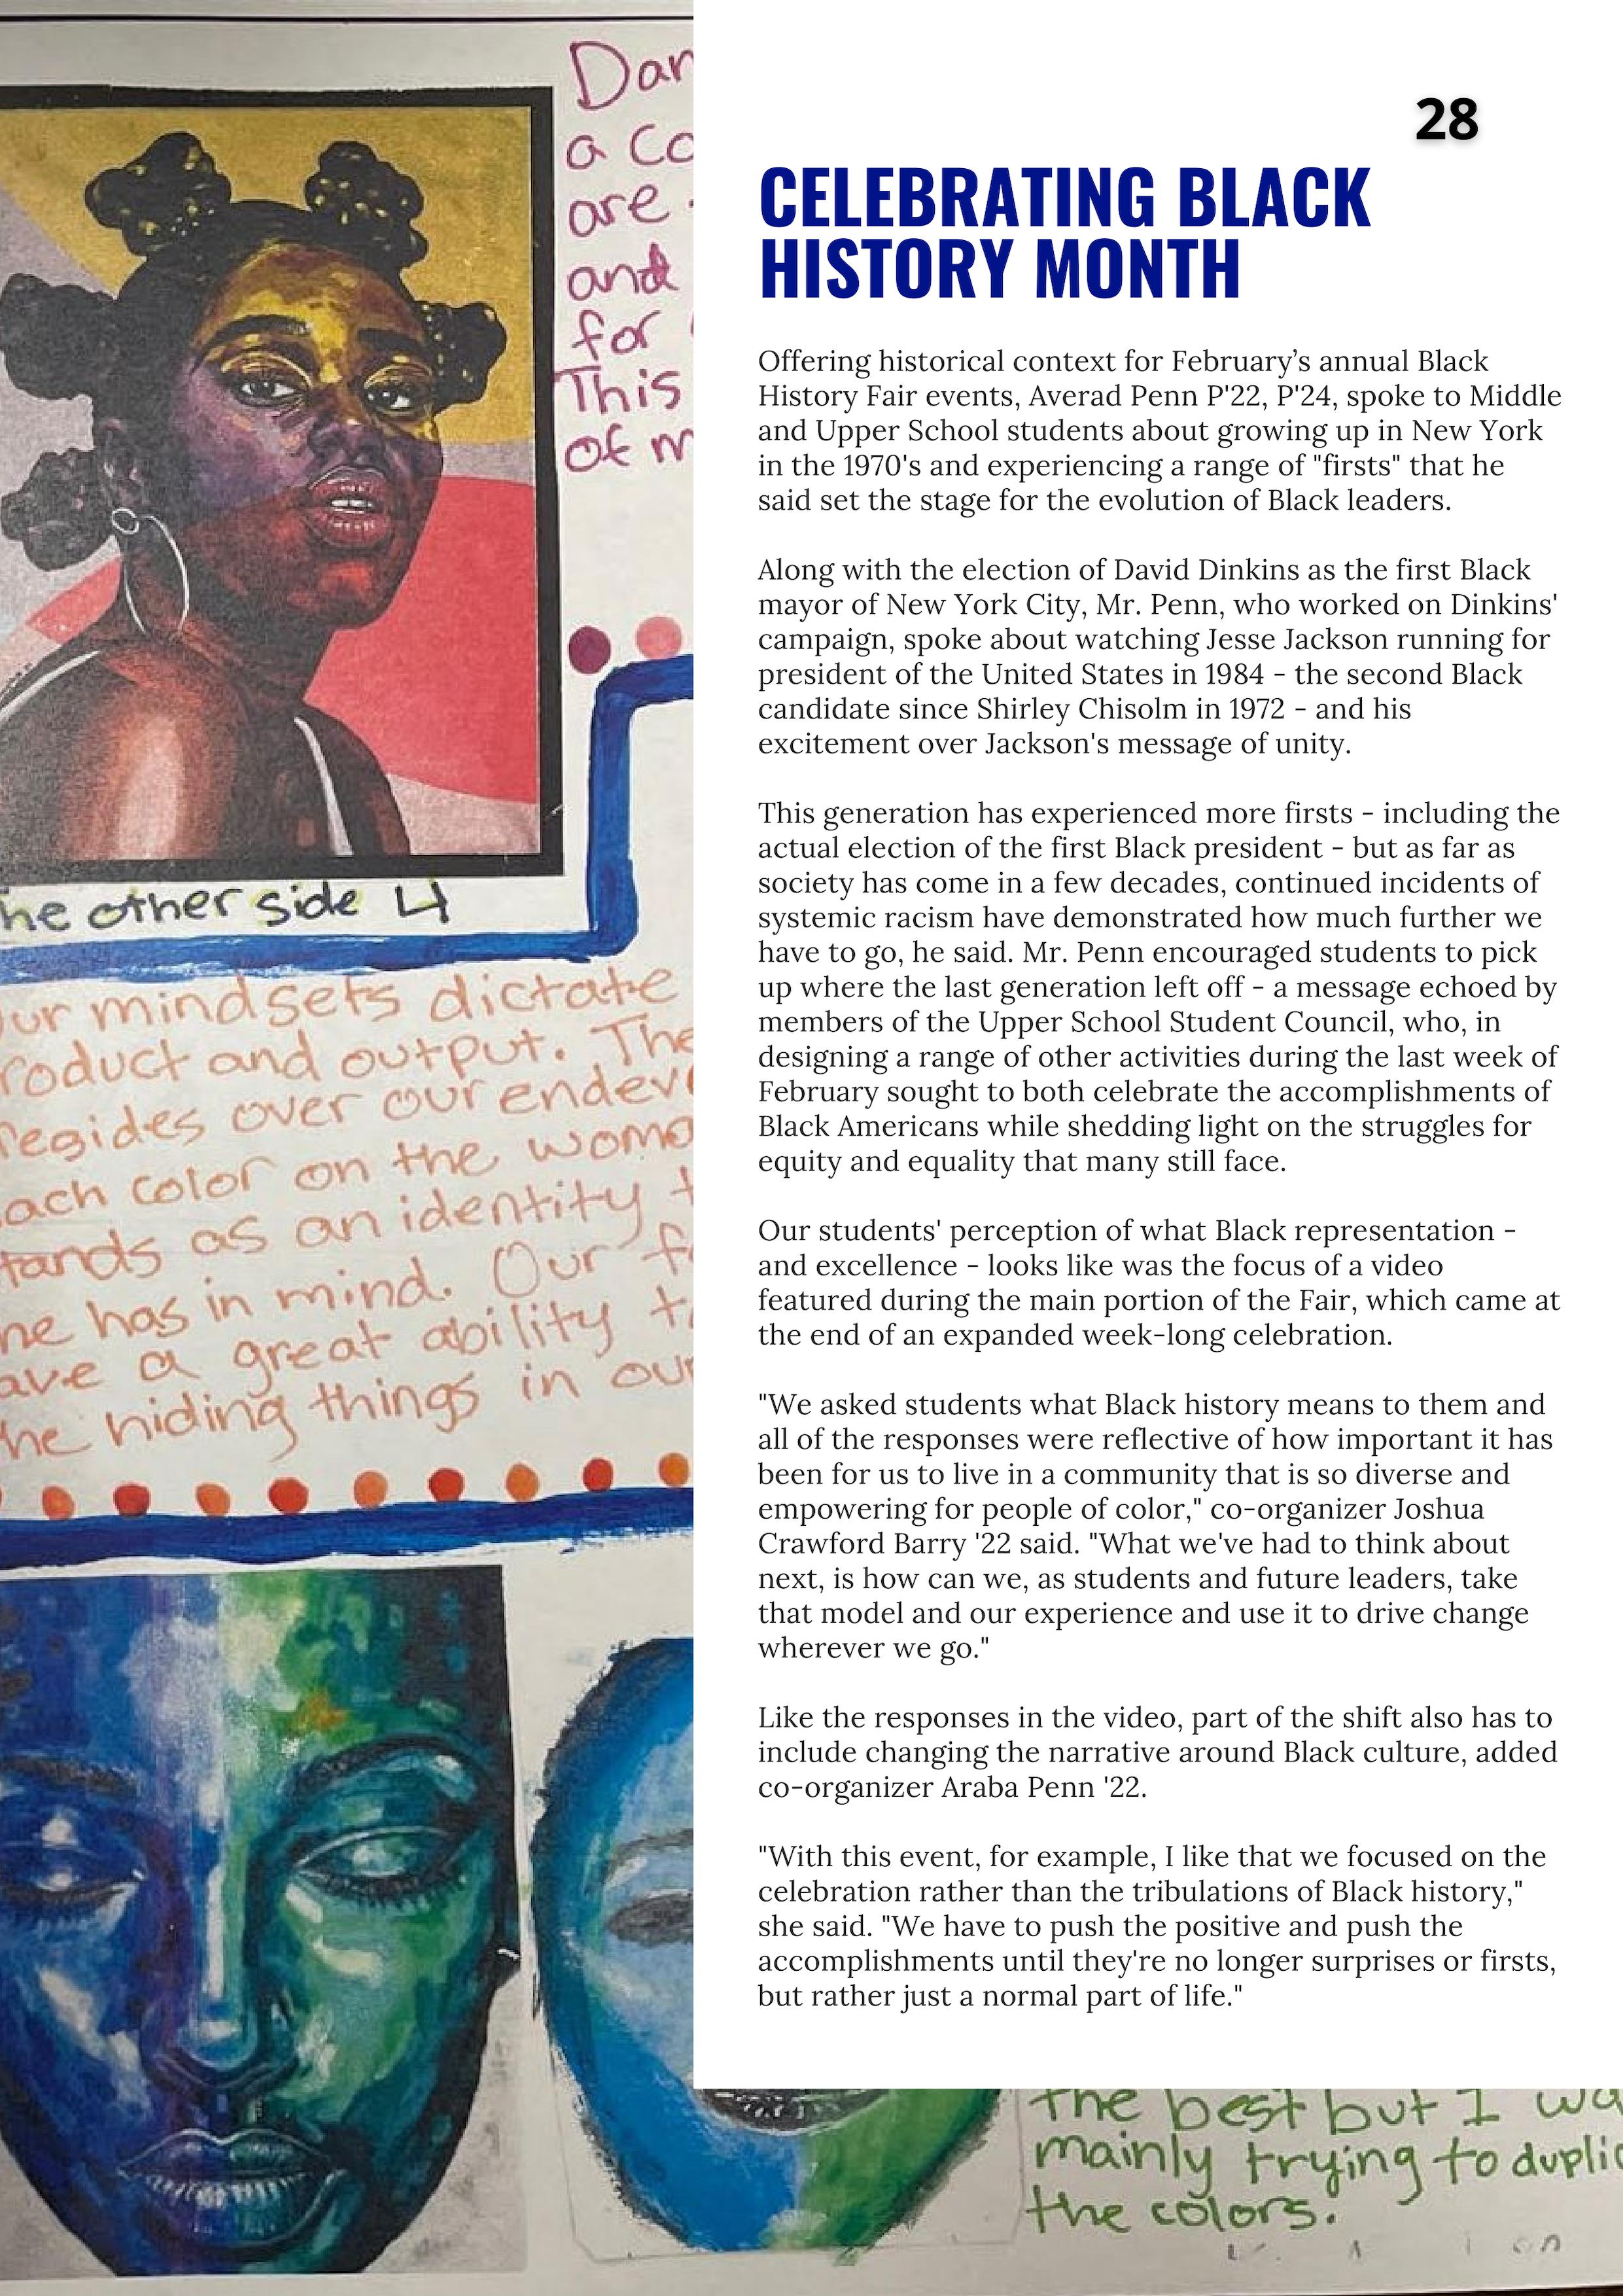 Dar
a co
are
and
for
This
of m
he other side 4
ur mindsets dictate
roduct and output. The
resides over our endev
ach color on the woma
tands as an identity t
ne has in mind. Our f
ave a great ability t
he hiding things in our
28
CELEBRATING BLACK
HISTORY MONTH
Offering historical context for February’s annual Black
History Fair events, Averad Penn P'22, P'24, spoke to Middle
and Upper School students about growing up in New York
in the 1970's and experiencing a range of "firsts" that he
said set the stage for the evolution of Black leaders.
Along with the election of David Dinkins as the first Black
mayor of New York City, Mr. Penn, who worked on Dinkins'
campaign, spoke about watching Jesse Jackson running for
president of the United States in 1984 - the second Black
candidate since Shirley Chisolm in 1972 - and his
excitement over Jackson's message of unity.
This generation has experienced more firsts - including the
actual election of the first Black president - but as far as
society has come in a few decades, continued incidents of
systemic racism have demonstrated how much further we
have to go, he said. Mr. Penn encouraged students to pick
up where the last generation left off - a message echoed by
members of the Upper School Student Council, who, in
designing a range of other activities during the last week of
February sought to both celebrate the accomplishments of
Black Americans while shedding light on the struggles for
equity and equality that many still face.
Our students' perception of what Black representation -
and excellence - looks like was the focus of a video
featured during the main portion of the Fair, which came at
the end of an expanded week-long celebration.
"We asked students what Black history means to them and
all of the responses were reflective of how important it has
been for us to live in a community that is so diverse and
empowering for people of color," co-organizer Joshua
Crawford Barry '22 said. "What we've had to think about
next, is how can we, as students and future leaders, take
that model and our experience and use it to drive change
wherever we go."
Like the responses in the video, part of the shift also has to
include changing the narrative around Black culture, added
co-organizer Araba Penn '22.
"With this event, for example, I like that we focused on the
celebration rather than the tribulations of Black history,"
she said. "We have to push the positive and push the
accomplishments until they're no longer surprises or firsts,
but rather just a normal part of life."
the best but I wa
mainly trying to duplic
the colors.